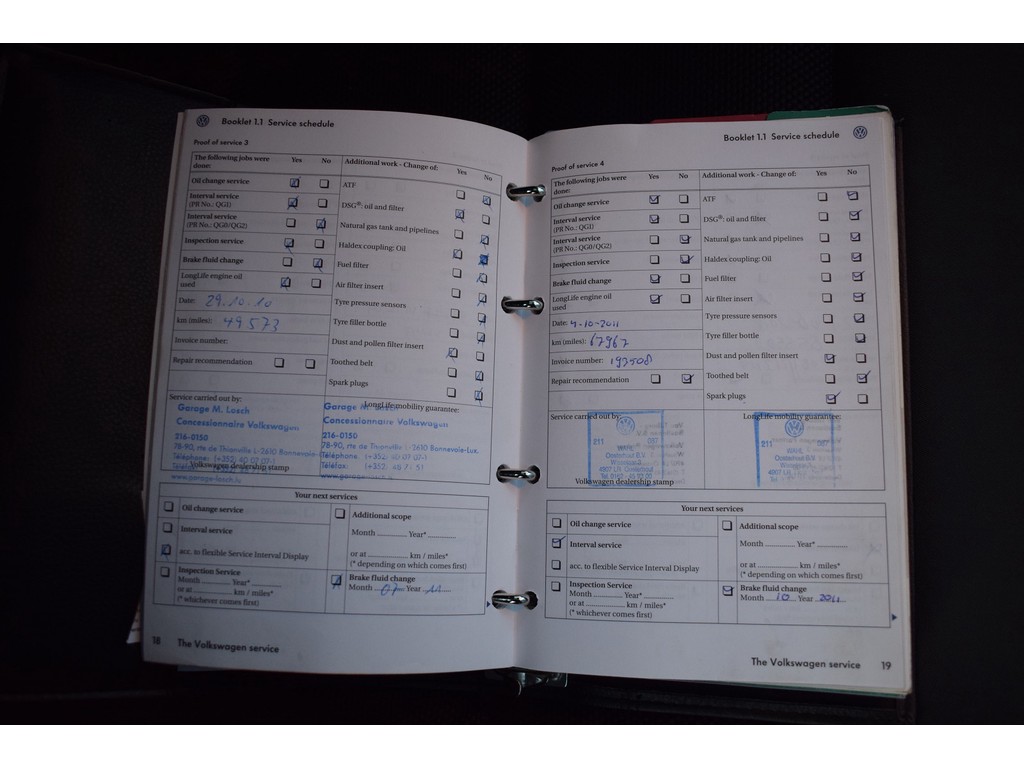 Booklet 1.1 Service schedule
Proof of service 3
The following jobs were done: Yes No
Oil change service
Interval service
(PR No.: QG1)
Interval service
(PR No.: QG0/QG2)
Inspection service
Brake fluid change
LongLife engine oil
used
Date: 29.10.10
km (miles): 49573
Invoice number:
Repair recommendation
Additional work - Change of: Yes No
ATF
DSG®: oil and filter
Natural gas tank and pipelines
Haldex coupling: Oil
Fuel filter
Air filter insert
Tyre pressure sensors
Tyre filler bottle
Dust and pollen filter insert
Toothed belt
Spark plugs
Service carried out by:
Garage M. Losch
Concessionnaire Volkswagen
216-0150
78-90, rte de Thionville L-2610 Bonnevoie
Téléphone: (+352) 40 07 07-1
Volkswagen dealership stamp
www.garage-losch.lu
LongLife mobility guarantee:
Garage M. Losch
Concessionnaire Volkswagen
216-0150
78-90, rte de Thionville L-2610 Bonnevoie-Lux.
Téléphone: (+352) 40 07 07-1
Téléfax:
Your next services
Oil change service
Interval service
acc. to flexible Service Interval Display
Inspection Service
Month Year*
or at km / miles*
(* whichever comes first)
Additional scope
Month Year*
or at km / miles*
(* depending on which comes first)
Brake fluid change
Month 07 Year 11
18 The Volkswagen service
Booklet 1.1 Service schedule
Proof of service 4
The following jobs were done: Yes No
Oil change service
Interval service
(PR No.: QG1)
Interval service
(PR No.: QG0/QG2)
Inspection service
Brake fluid change
LongLife engine oil
used
Date: 4-10-2011
km (miles): 67967
Invoice number: 197508
Repair recommendation
Additional work - Change of: Yes No
ATF
DSG®: oil and filter
Natural gas tank and pipelines
Haldex coupling: Oil
Fuel filter
Air filter insert
Tyre pressure sensors
Tyre filler bottle
Dust and pollen filter insert
Toothed belt
Spark plugs
Service carried out by:
211 087
WAHL
Oosterhout B.V.
4907 LR Oosterhout
Volkswagen dealership stamp
LongLife mobility guarantee:
211 087
WAHL
Oosterhout B.V.
Your next services
Oil change service
Interval service
acc. to flexible Service Interval Display
Inspection Service
Month Year*
or at km / miles*
(* whichever comes first)
Additional scope
Month Year*
or at km / miles*
(* depending on which comes first)
Brake fluid change
Month 10 Year 2011
The Volkswagen service 19